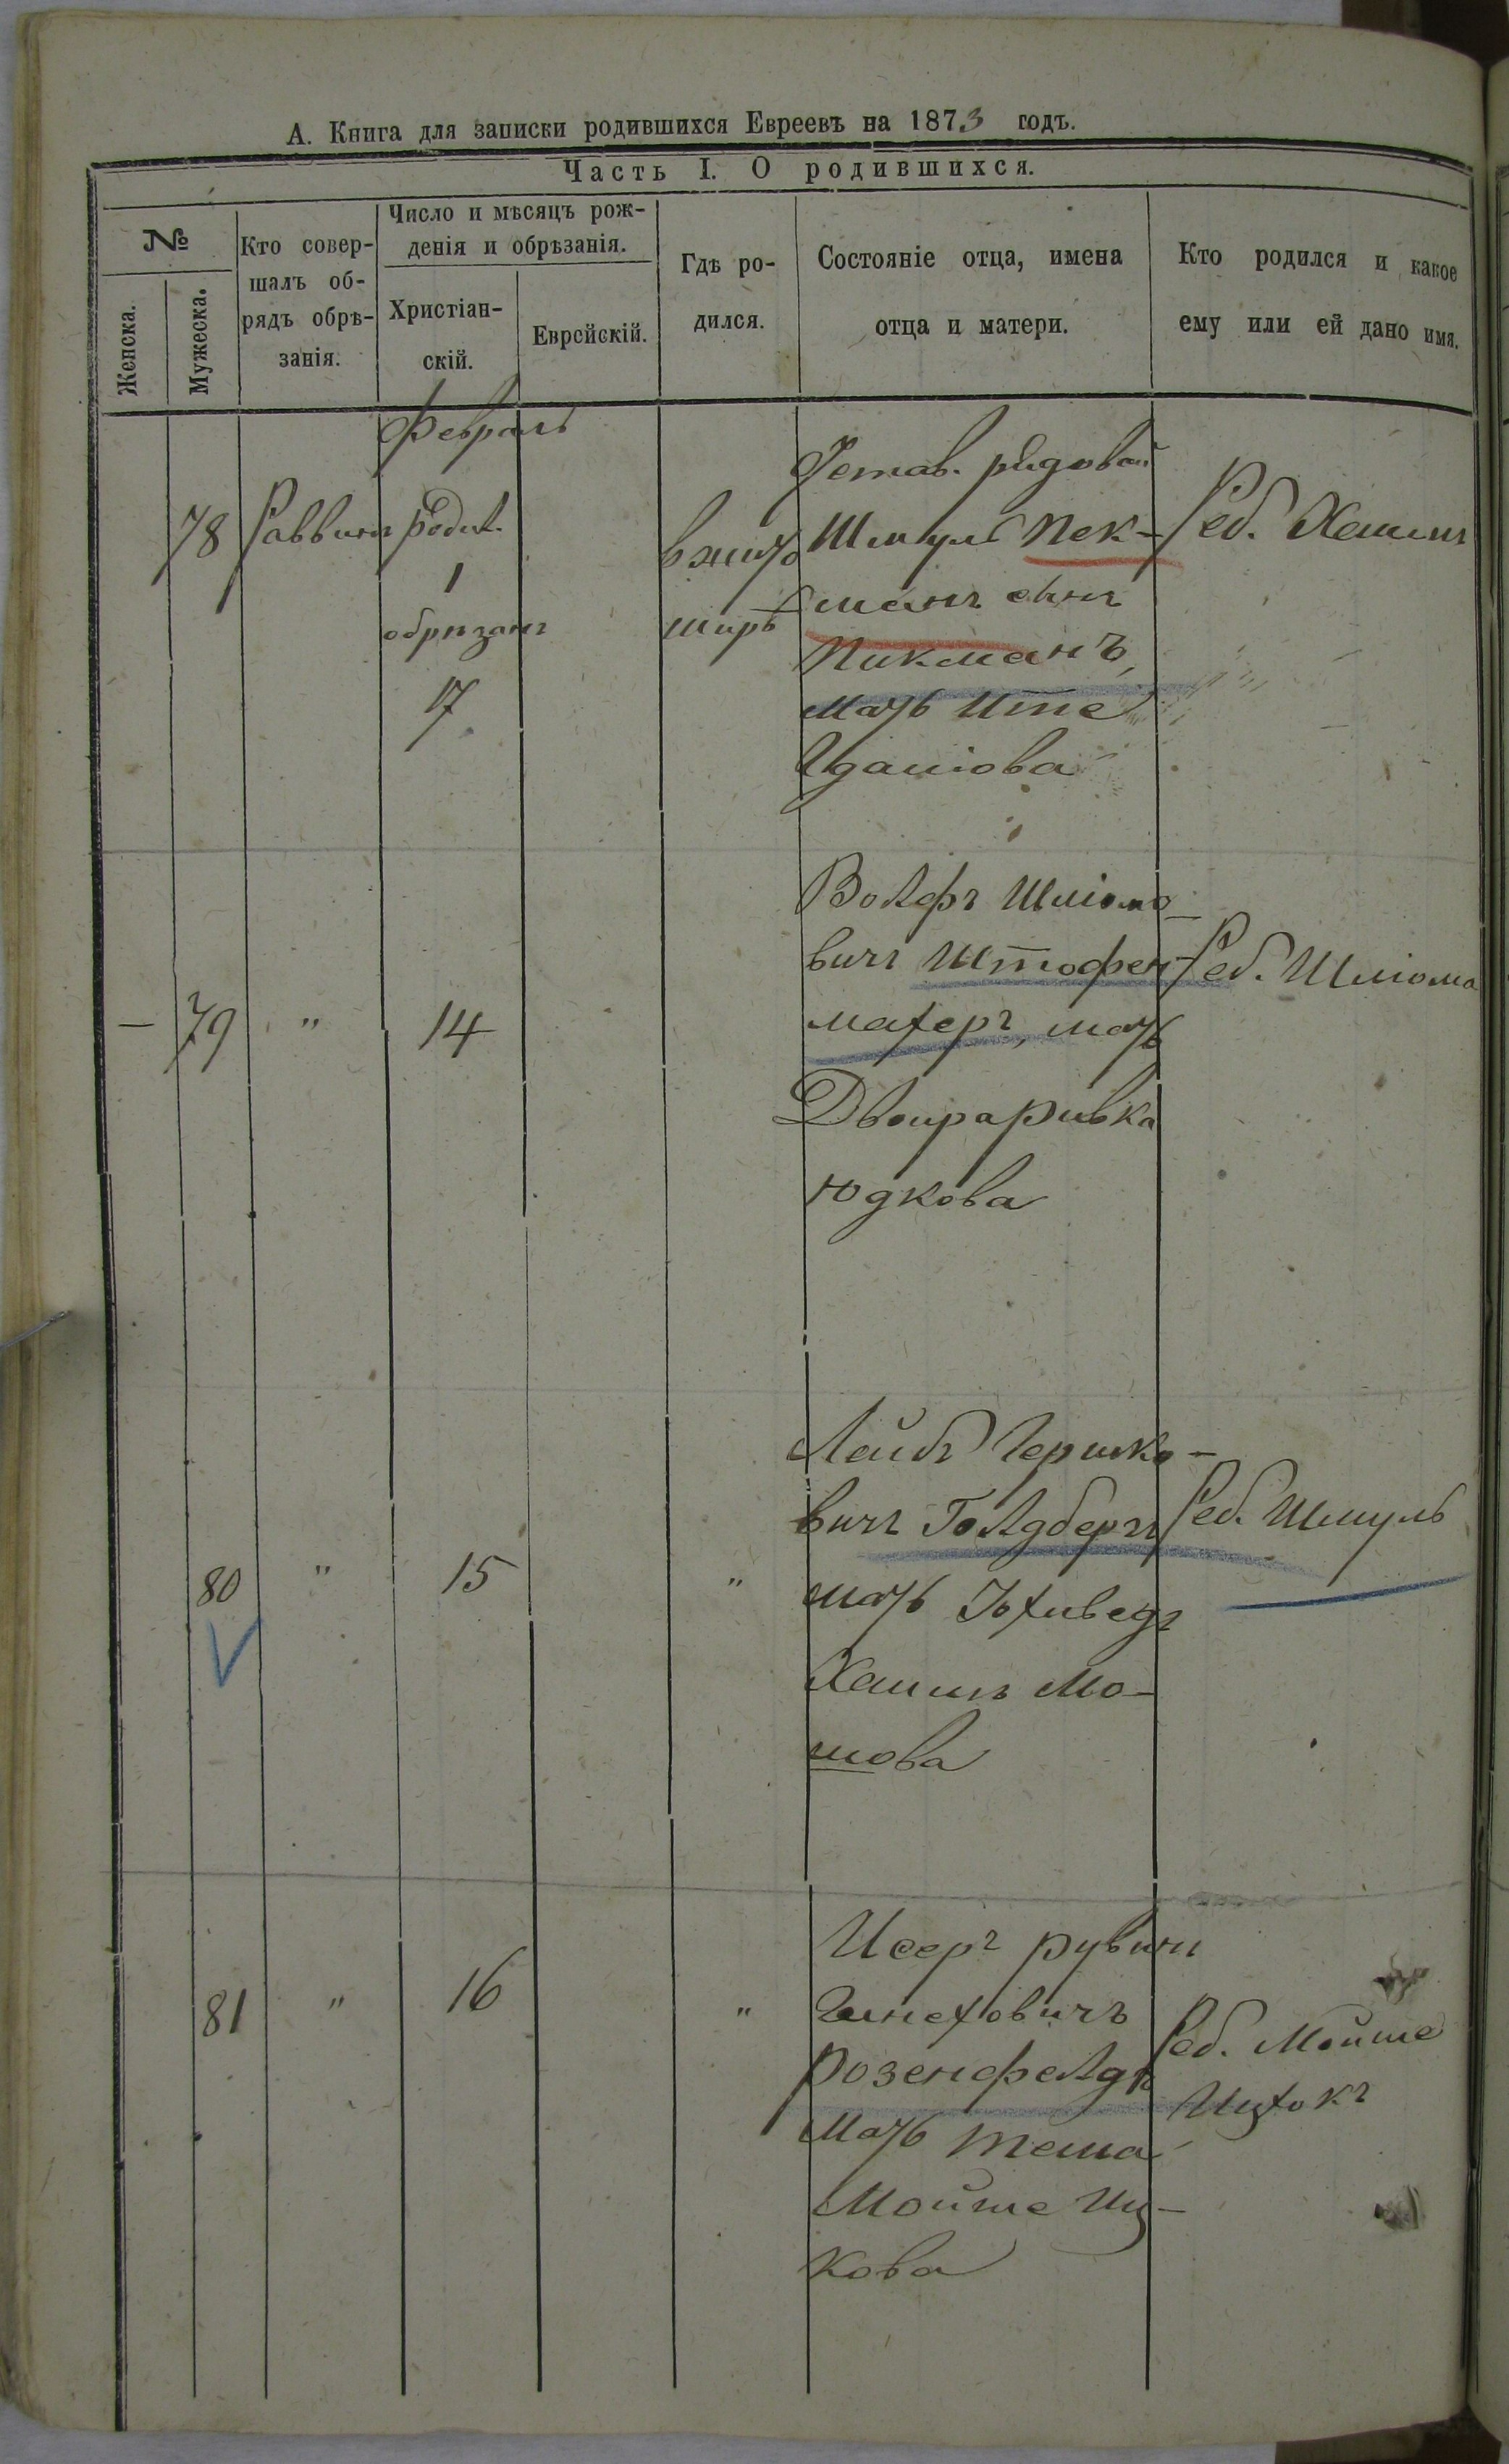 А. Книга для записки родившихся Евреевъ на 1873 годъ.
Часть I. О родившихся.
№
Женска.
Мужеска.
Кто совер-
шалъ об-
рядъ обрѣ-
занія.
Число и мѣсяцъ рож-
денія и обрѣзанія.
Христіан-
скій.
Еврейскій.
Гдѣ ро-
дился.
Состояніе отца, имена
отца и матери.
Кто родился и какое
ему или ей дано имя.
Февраль
78
Раввинъ
Родил.
1
обрѣзанъ
17
в жито
мирѣ
Устав. рядовой
Шмуль Пек-
манъ
Пикманъ,
мать Ите
Реб. Хаимъ
— 79 " 14
Вольфъ Шліомо-
вичъ Штофен-
махеръ, мать
Двойра Ривка
Юдкова
Реб. Шліома
80 " 15 "
Лейбъ Гершко-
вичъ Голдбергъ
мать Іохиведъ
Хаимъ Мо-
шова
Реб. Шмуль
81 " 16 "
Исеръ Рувинъ
Розенфелдъ
мать
Мойше Иц-
кова
Реб. Мойше
Ицхокъ